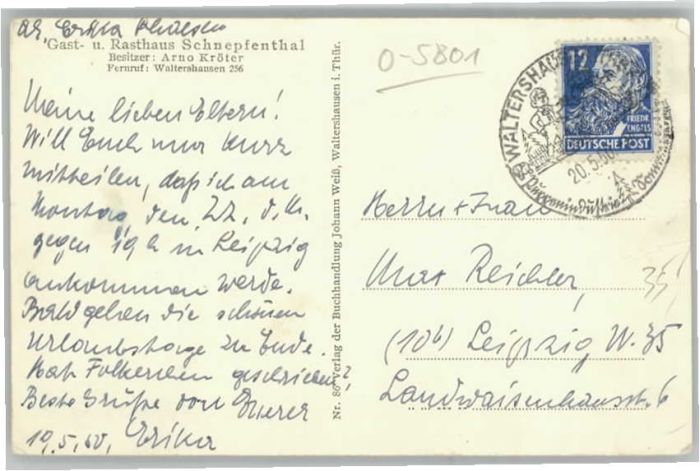 Abs. Erika
Gast- u. Rasthaus Schnepfenthal
Besitzer: Arno Kröter
Fernruf: Waltershausen 256
Meine lieben Eltern!
Will Euch nur kurz
mitteilen, daß ich am
Montag, den 22. d. M.
gegen 19h in Leipzig
ankommen werde.
Bald gehen die schönen
Urlaubstage zu Ende.
Hat geschrieben?
Beste Grüße von Eurer
19.5.50. Erika
Nr. 86 Verlag der Buchhandlung Johann Weiß, Waltershausen i. Thür.
0-5801
12
FRIEDR. ENGELS
DEUTSCHE POST
WALTERSHAUSEN
20.5.50
Puppenindustrie
Herrn + Frau
Max Reichler
(10b) Leipzig W. 35
Landwaisenhausstr. 6
35,